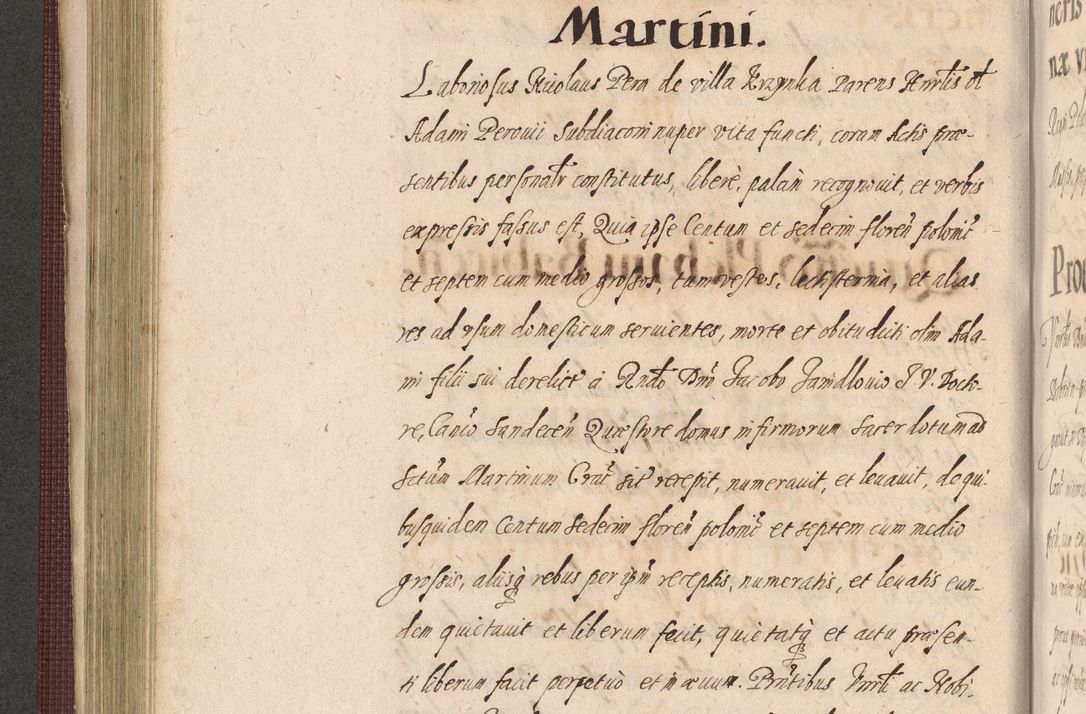 Martini.
Laboriosus Nicolaus Pera de villa Krzynka Parens Hnrlis olt
Adami Perovii Subdiaconi nuper vita functi, coram Actis præ-
sentibus personalr constitutus, liberè, palàm recognovit, et verbis
expressis fassus est, Quia ipse Centum et sedecim floren polonic
et septem cum medio grossos, tum vestes, lechisternia, et alias
res ad usum domesticum servientes, morte et obitu dicti olim Ada-
mi filii sui derelict à Rndo Dno Jacobo Janidlovio J. V. Docto-
re, Canco Sandecen Quæstore domus infirmorum Sacerdotum ad
Sctum Martinum Crac sit recepit, numeravit, et levavit, de qui-
busquidem Centum Sedecim floren polonic et septem cum medio
grossis, aliisq rebus per ipm receptis, numeratis, et levatis eun-
dem quietavit et liberum fecit, quietatq et actu præsen-
ti liberum facit perpetuò et in ævum. Præntibus Vnrli ac Nobi-